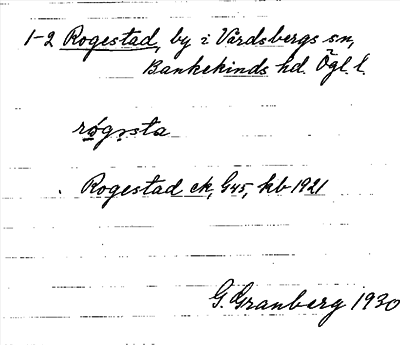 1-2 Rogestad, by i Vårdsbergs sn,
Bankekinds hd. Ögl. l.
røgsta
Rogestad ek, G45, kb 1921
G. Granberg 1930